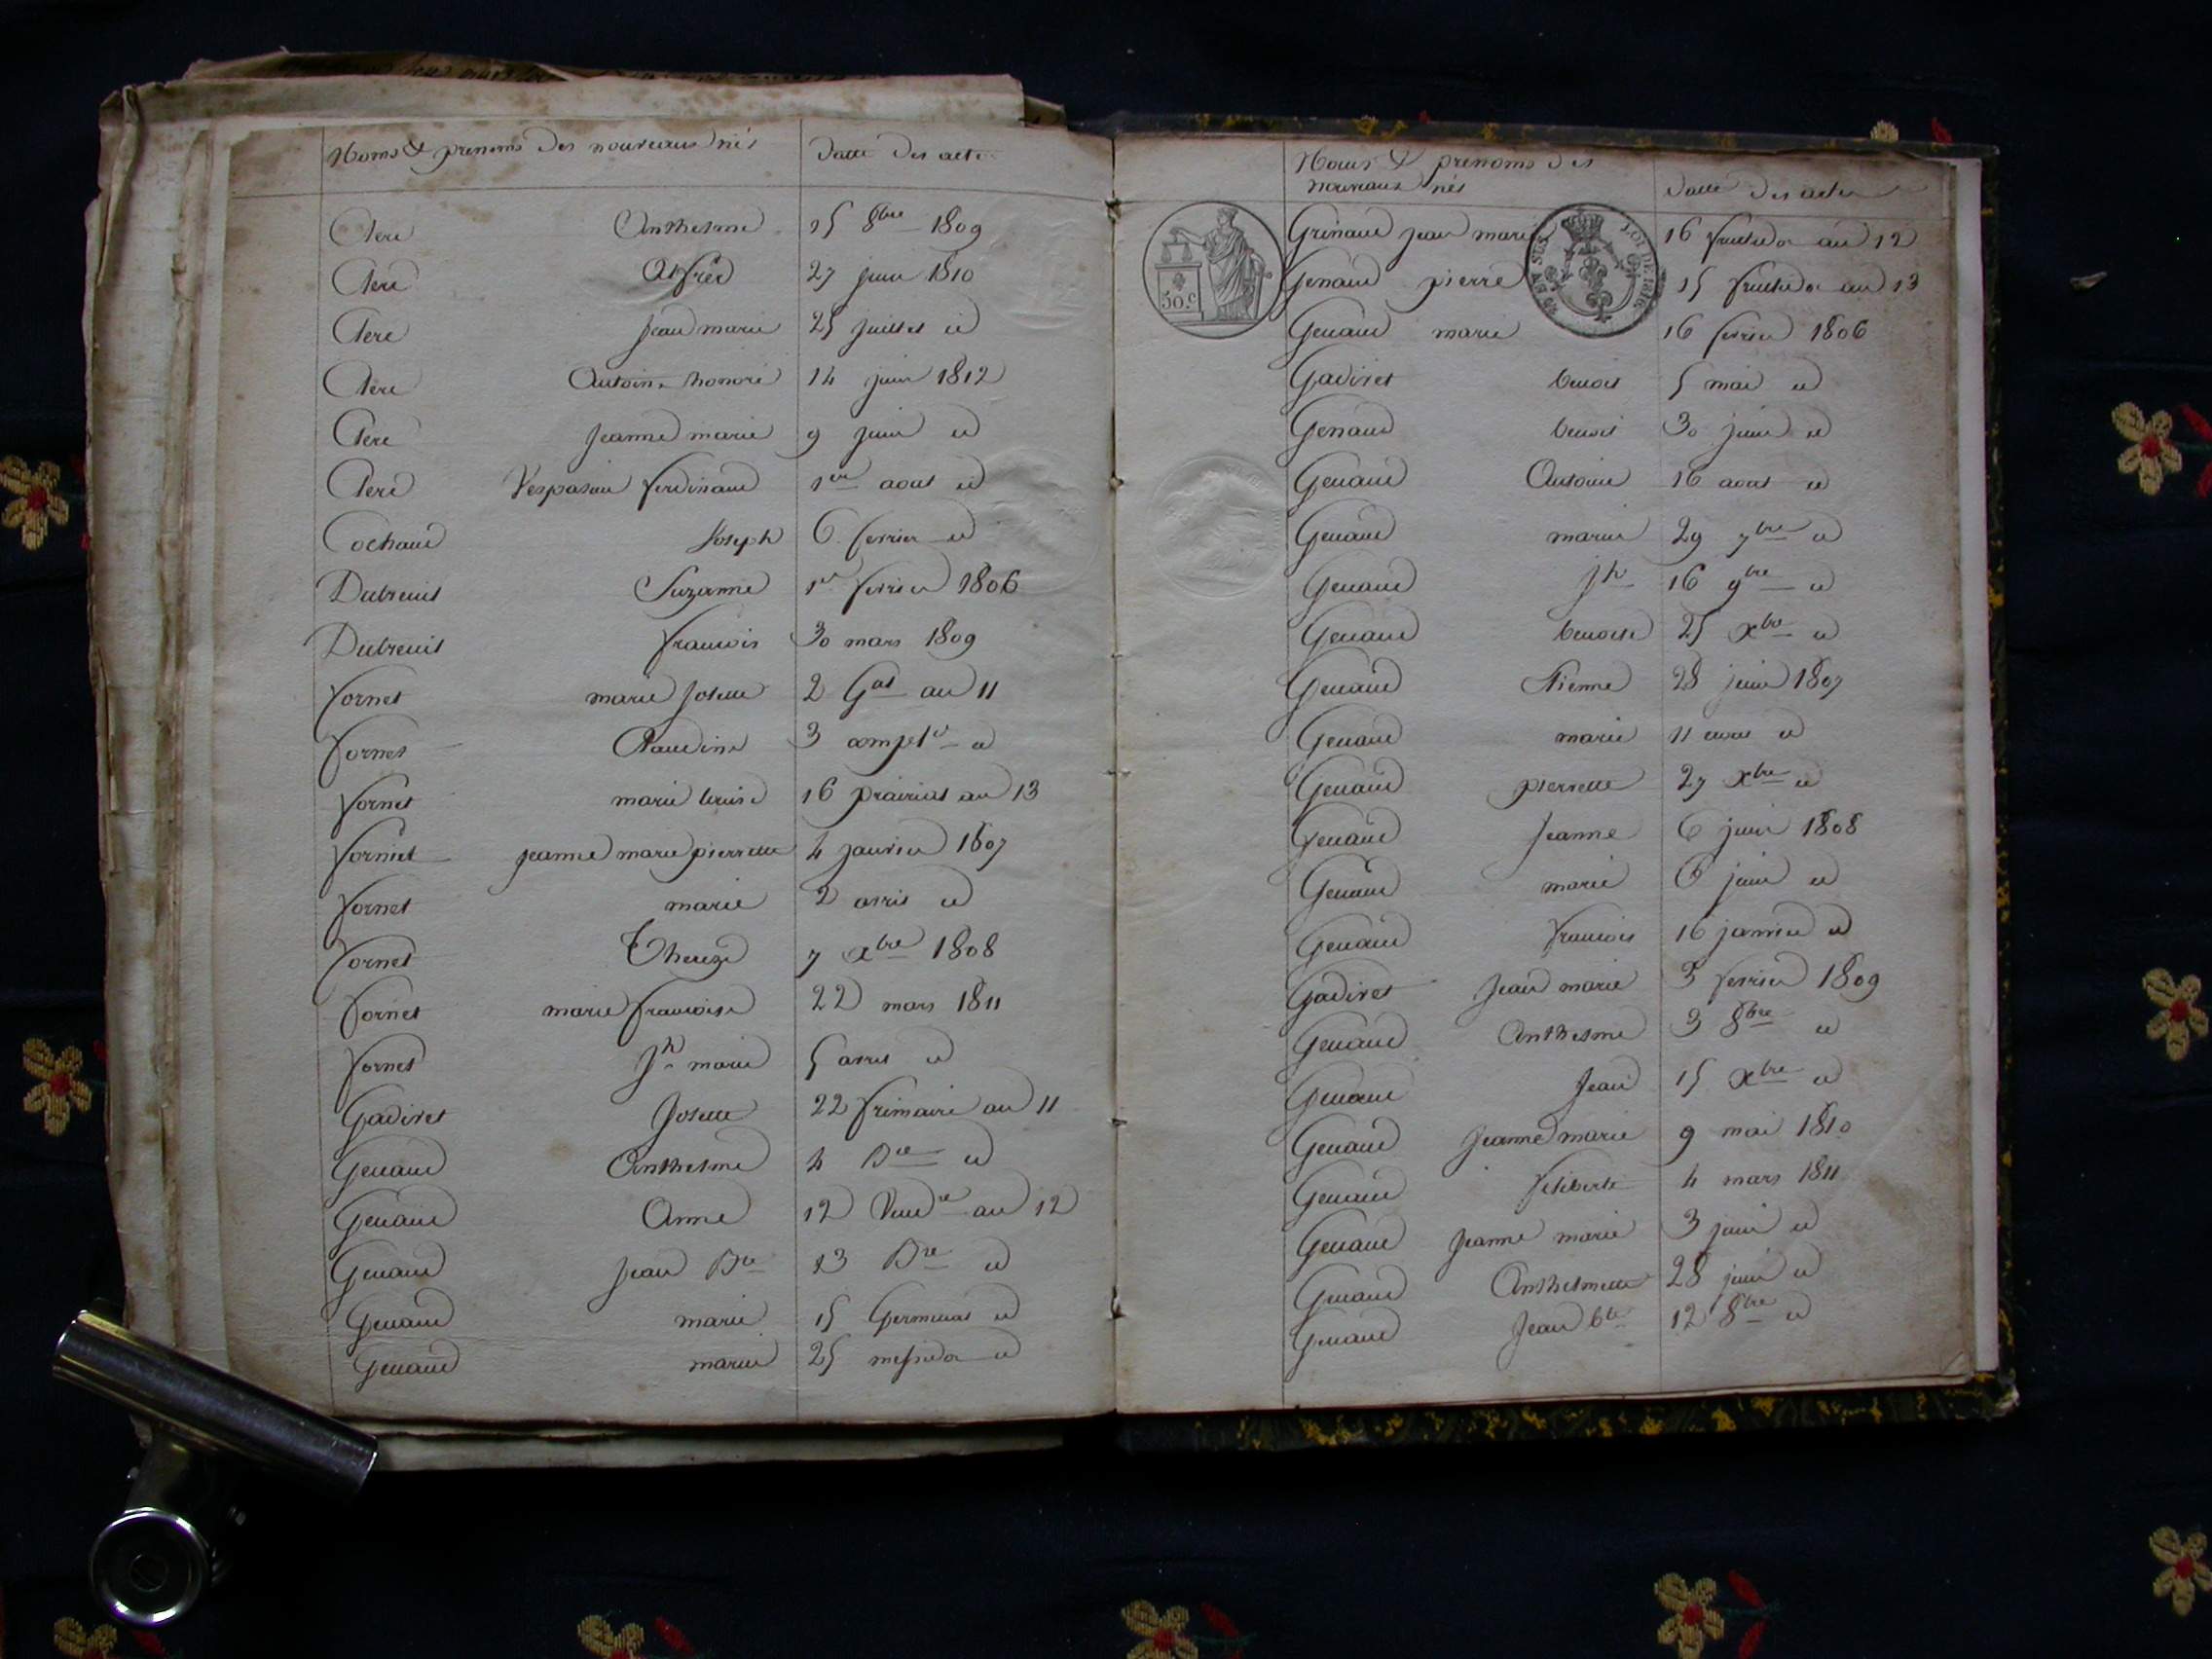 Noms & prenoms des nouveaux nés Datte des actes
Clere Anthelme 15 8bre 1809
Clere Alfred 27 juin 1810
Clere Jean marie 25 juillet id
Clere Antoine honoré 14 juin 1812
Clere Jeanne marie 9 juin id
Clere Vespasien ferdinand 1er aout id
Cochaud Joseph 6 fevrier id
Dubreuil Suzanne 1er fevrier 1806
Dubreuil francois 30 mars 1809
fornet marie Josette 2 Gal an 11
fornet Claudine 3 complre id
fornet marie louise 16 prairial an 13
fornet jeanne marie pierrette 4 janvier 1807
fornet marie 2 avril id
fornet Thereze 7 xbre 1808
fornet marie francoise 22 mars 1811
fornet Jh marie 5 avril id
Gadiret Josette 22 frimaire an 11
Genaud Anthelme 4 Bre id
Genaud Anne 12 Vendre an 12
Genaud Jean Bte 13 Bre id
Genaud marie 15 Germinal id
Genaud marie 25 messidor id
Noms & prenoms des
nouveaux nés Datte des actes
50.c
EN SUS
LOI DE 1816
Grenaud jean marie 16 fructidor an 12
Genaud pierre 15 fructidor an 13
Genaud marie 16 fevrier 1806
Gadiret benoit 5 mai id
Genaud benoit 30 juin id
Genaud Antoine 16 aout id
Genaud marie 29 7bre id
Genaud Jh 16 9bre id
Genaud benoite 25 xbre id
Genaud Etienne 28 juin 1807
Genaud marie 11 aout id
Genaud pierrette 27 xbre id
Genaud Jeanne 6 juin 1808
Genaud marie 6 juin id
Genaud francois 16 janvier id
Gadiret Jean marie 3 fevrier 1809
Genaud Anthelme 3 8bre id
Genaud Jean 15 xbre id
Genaud Jeanne marie 9 mai 1810
Genaud filiberte 4 mars 1811
Genaud Jeanne marie 3 juin id
Genaud Anthelmette 28 juin id
Genaud Jean bte 12 8bre id